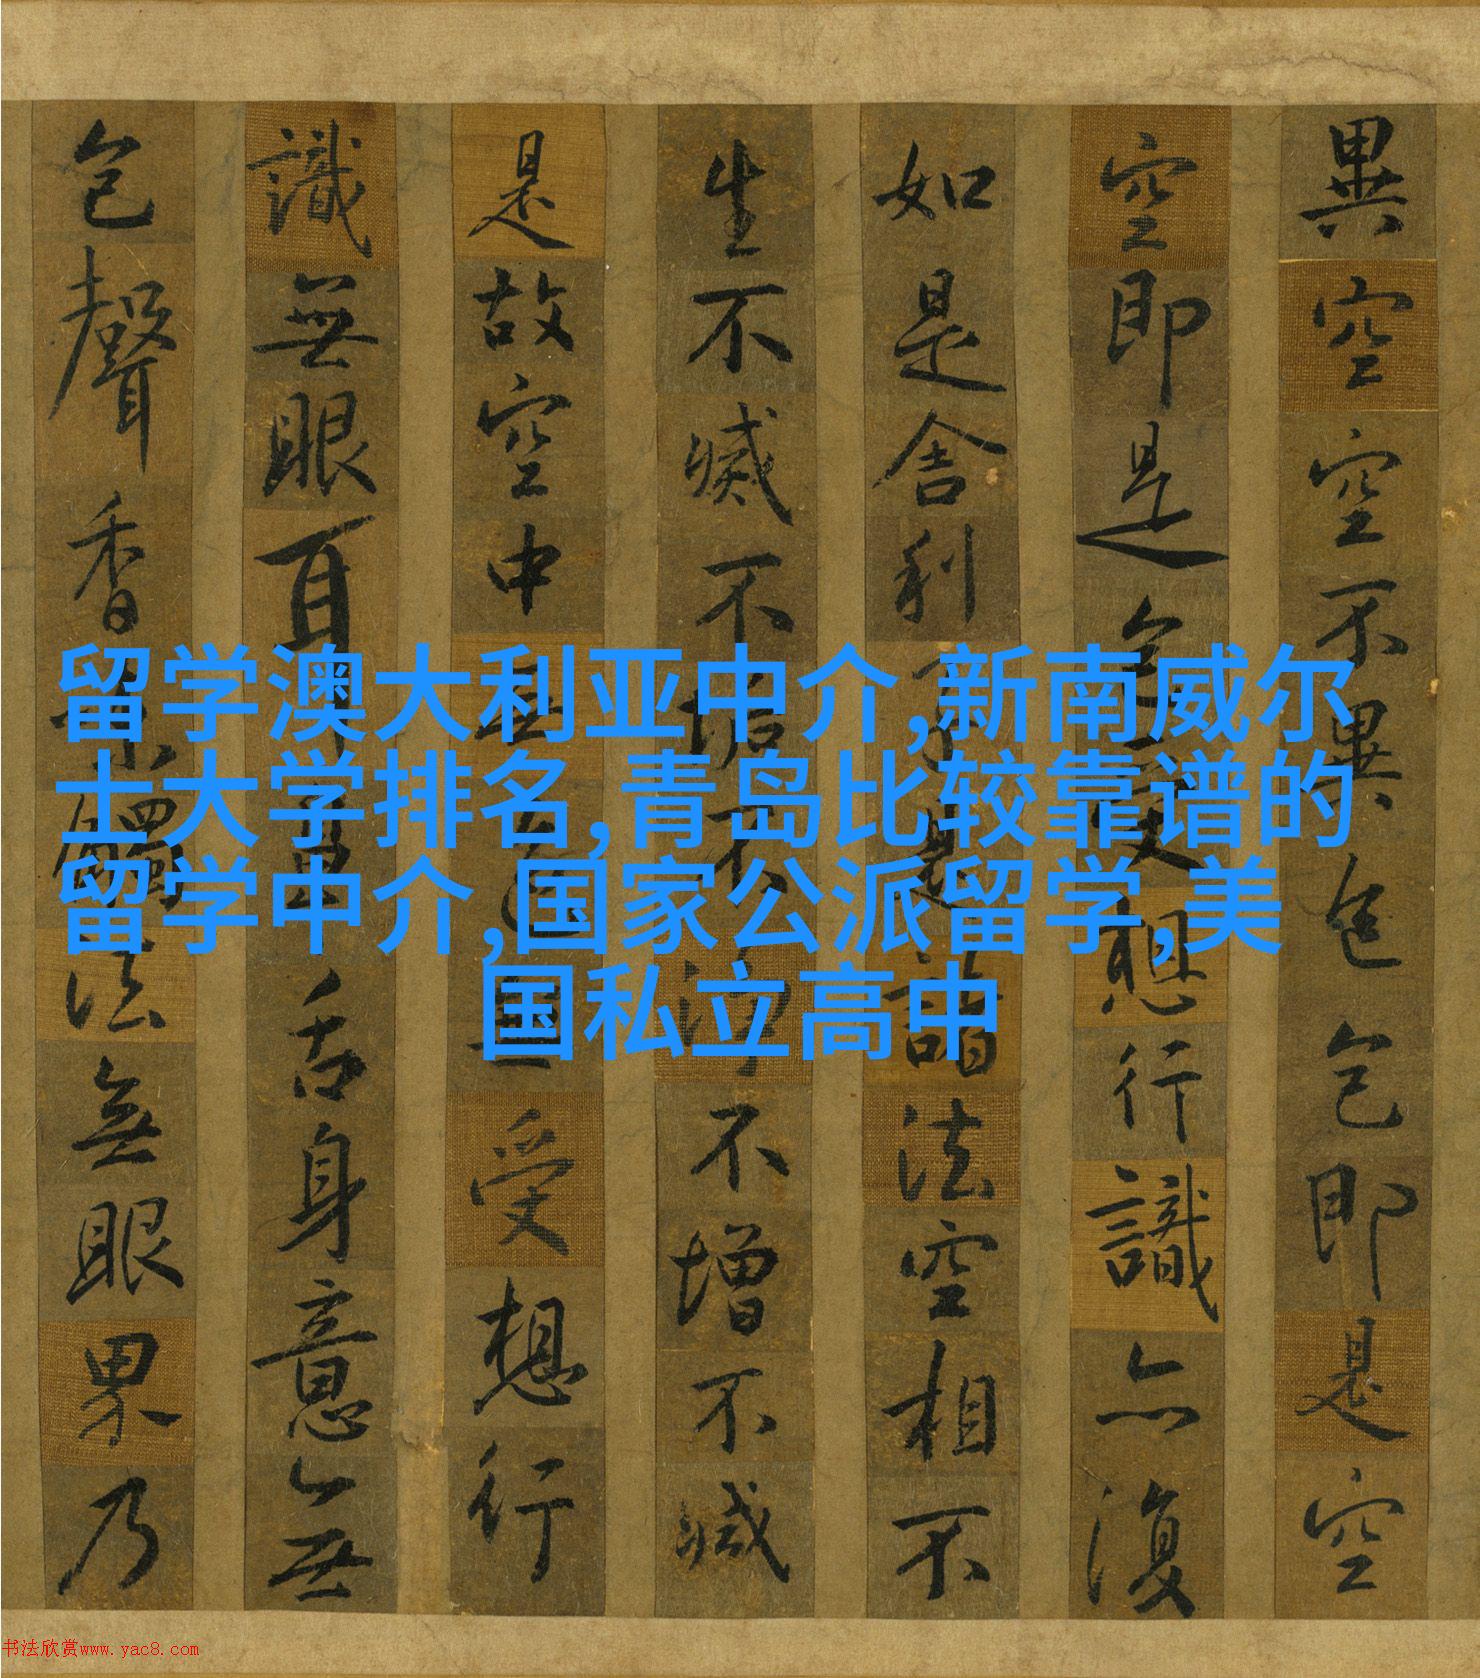 異空空不異色色即是空
空即是色受想行識亦復
如是舍利子是諸法空相不
生不滅不垢不淨不增不減
是故空中無色無受想行
識無眼耳鼻舌身意無
色聲香味觸法無眼界乃
留学澳大利亚中介,新南威尔
士大学排名,青岛比较靠谱的
留学中介,国家公派留学,美
国私立高中
书法欣赏www.yac8.com